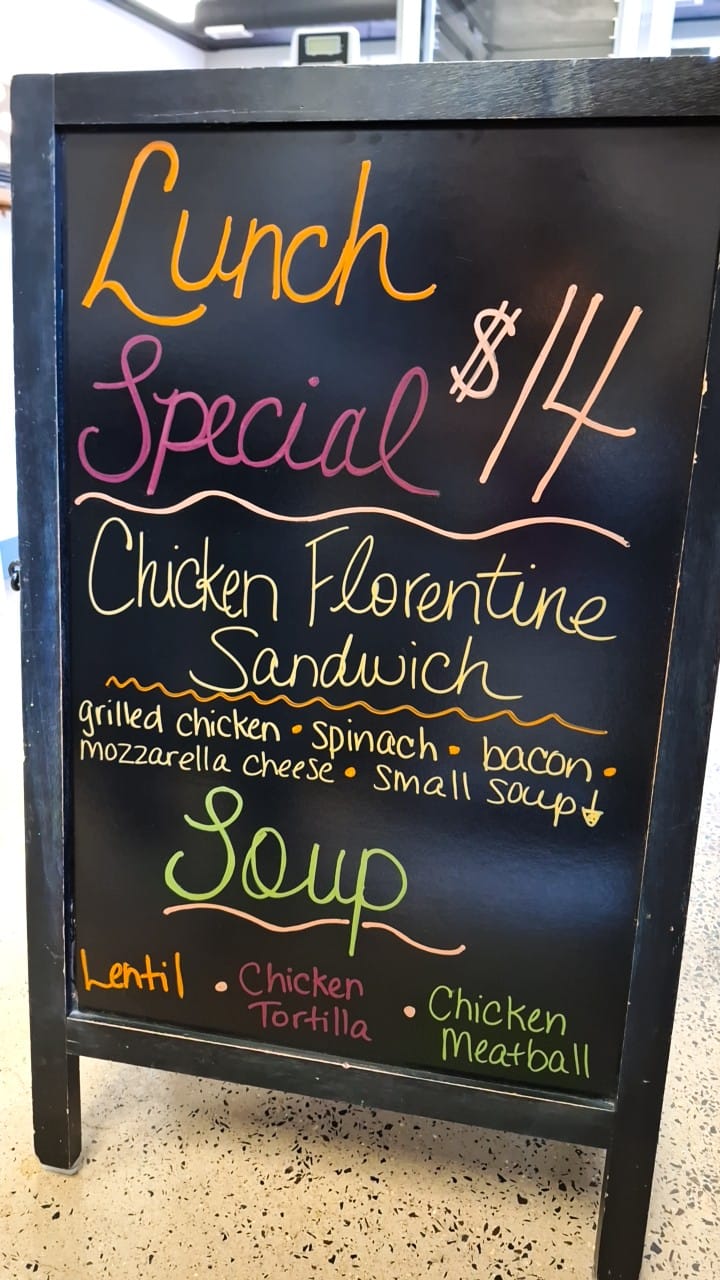 Lunch
Special $14
Chicken Florentine
Sandwich
grilled chicken • spinach • bacon •
mozzarella cheese • small soup
Soup
Lentil • Chicken Tortilla • Chicken Meatball